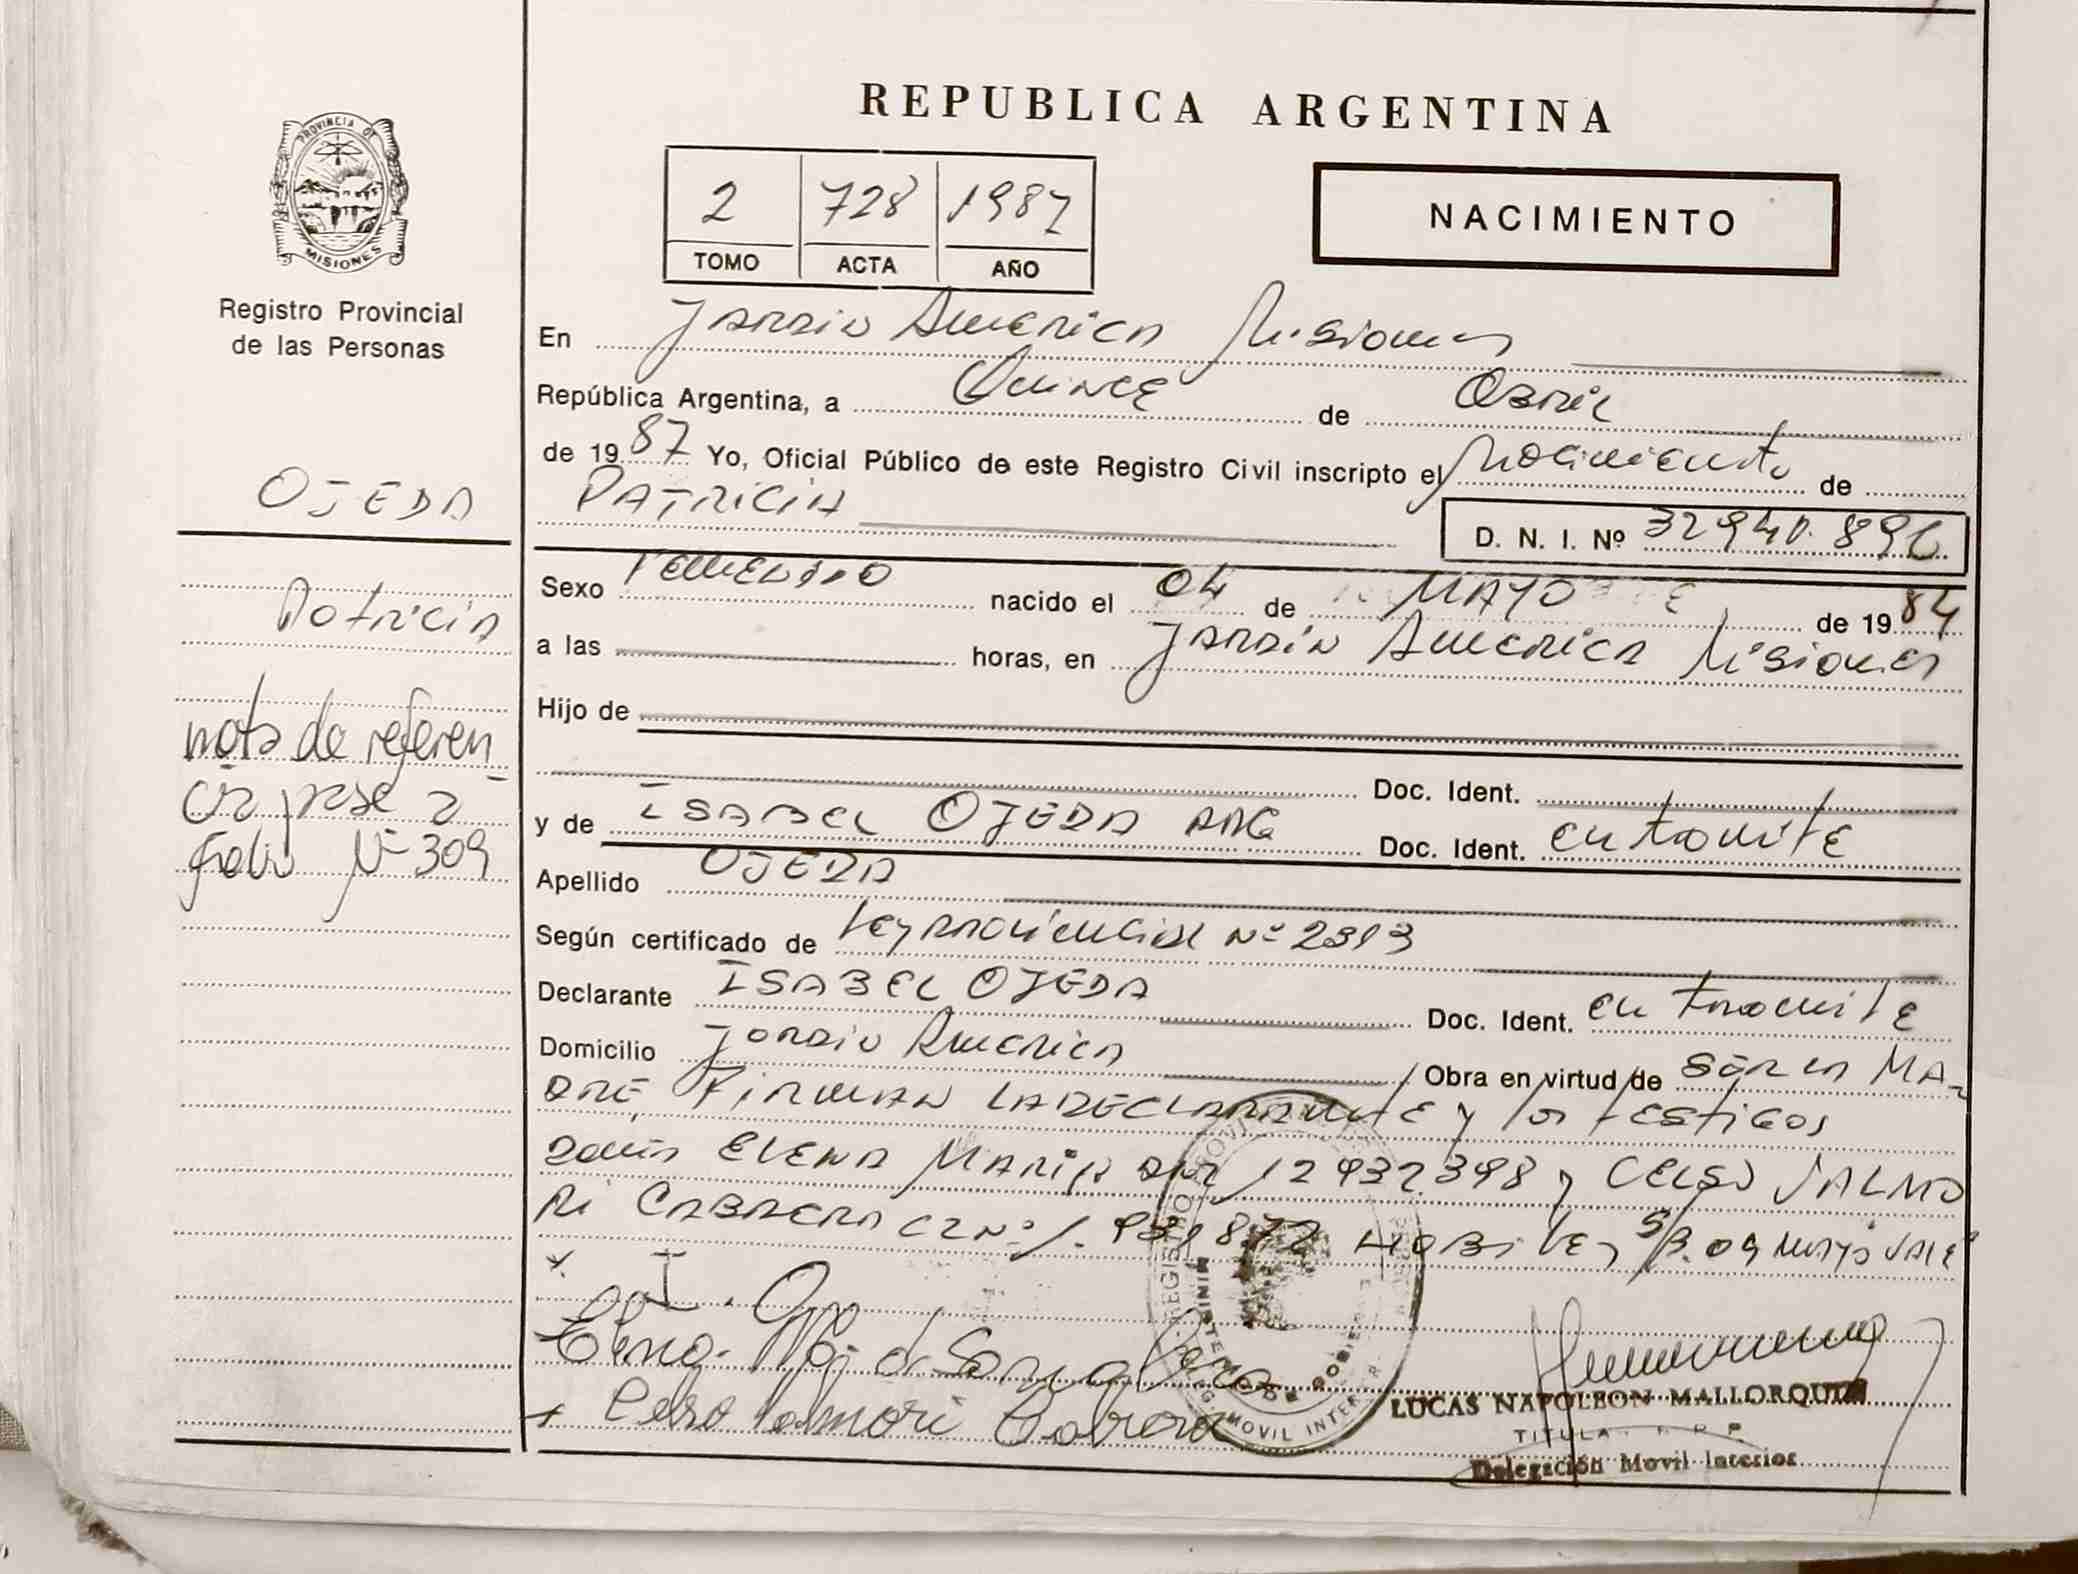 REPUBLICA ARGENTINA
PROVINCIA DE
MISIONES
Registro Provincial
de las Personas
2 728 1987
TOMO ACTA AÑO
NACIMIENTO
En Jardin America Misiones
República Argentina, a Quince de Abril
de 1987 Yo, Oficial Público de este Registro Civil inscripto el Nacimiento de
PATRICIA
D. N. I. Nº 32940.896
OJEDA
Patricia
nota de referen
cia pase a
folio Nº 309
Sexo Femenino nacido el 04 de MAYO de 1984
a las horas, en Jardin America Misiones
Hijo de
Doc. Ident.
y de ISABEL OJEDA ARG Doc. Ident. en tramite
Apellido OJEDA
Según certificado de Ley provincial Nº 2313
Declarante ISABEL OJEDA Doc. Ident. en tramite
Domicilio Jardin America Obra en virtud de SER LA MA-
DRE, FIRMAN LA DECLARANTE y los testigos
ELENA MARIA DNI 12932398 y CELSO VALMO
RI CABRERA CI Nº 931872 HABILES S/R. 04 MAYO VALE
I. O
Celso Valmori Cabrera
LUCAS NAPOLEON MALLORQUIN
TITULAR R P P
Delegación Movil Interior